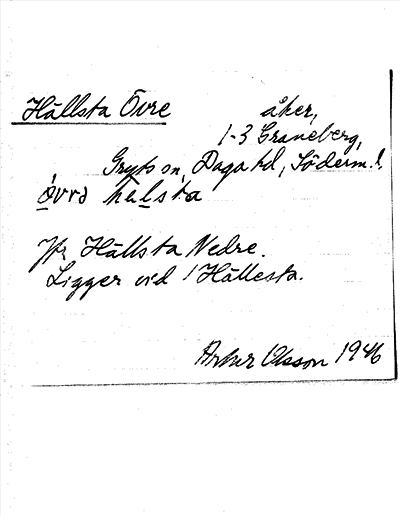 Hållsta Övre åker,
1-3 Graneberg,
Gryts sn, Daga hd, Söderm.l.
òvrə hàlsta
Jfr Hållsta Nedre.
Ligger vid 1 Hållesta.
Arthur Olsson 1946